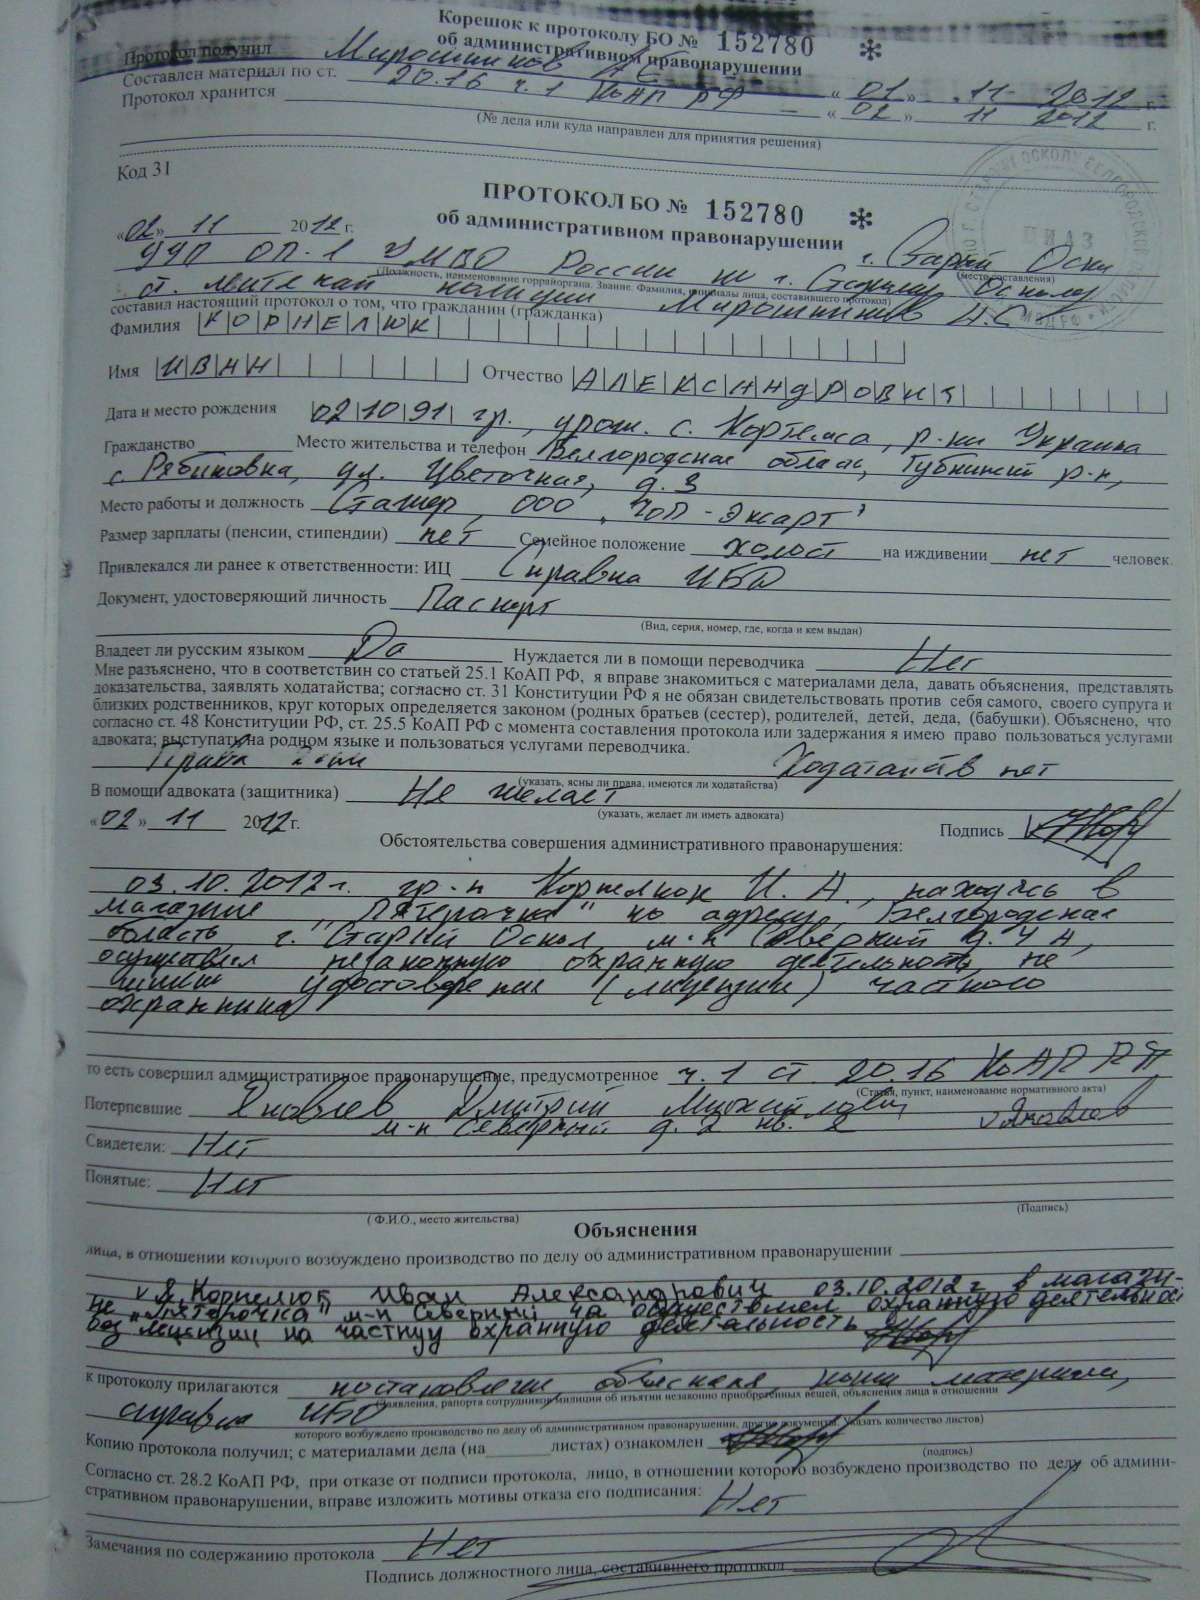 Корешок к протоколу БО № 152780
об административном правонарушении
Протокол получил Мирошников А.С.
Составлен материал по ст. 20.16 ч.1 КоАП РФ «01» 11 2012 г.
Протокол хранится — «02» 11 2012 г.
(№ дела или куда направлен для принятия решения)
Код 31
ПРОТОКОЛ БО № 152780
об административном правонарушении
«02» 11 2012 г. г. Старый Оскол
УУП ОП-1 УМВД России по г. Старому Осколу
(Должность, наименование горрайоргана. Звание. Фамилия, инициалы лица, составившего протокол) (место составления)
ст. лейтенант полиции Мирошников А.С.
составил настоящий протокол о том, что гражданин (гражданка)
Фамилия КОРНЕЛЮК
Имя ИВАН Отчество АЛЕКСАНДРОВИЧ
Дата и место рождения 02 10 91 гр., урож. с. р-ки Украина
Гражданство Место жительства и телефон Белгородская область, Губкинский р-н,
с. Рябиновка, ул. Цветочная, д. 3
Место работы и должность Стажер, ООО ЧОП
Размер зарплаты (пенсии, стипендии) нет Семейное положение холост на иждивении нет человек.
Привлекался ли ранее к ответственности: ИЦ Справка ИБД
Документ, удостоверяющий личность Паспорт
(Вид, серия, номер, где, когда и кем выдан)
Владеет ли русским языком Да Нуждается ли в помощи переводчика Нет
Мне разъяснено, что в соответствии со статьей 25.1 КоАП РФ, я вправе знакомиться с материалами дела, давать объяснения, представлять
доказательства, заявлять ходатайства; согласно ст. 31 Конституции РФ я не обязан свидетельствовать против себя самого, своего супруга и
близких родственников, круг которых определяется законом (родных братьев (сестер), родителей, детей, деда, (бабушки). Объяснено, что
согласно ст. 48 Конституции РФ, ст. 25.5 КоАП РФ с момента составления протокола или задержания я имею право пользоваться услугами
адвоката; выступать на родном языке и пользоваться услугами переводчика.
Права ясны Ходатайств нет
(указать, ясны ли права, имеются ли ходатайства)
В помощи адвоката (защитника) Не желает
(указать, желает ли иметь адвоката)
«02» 11 2012 г. Подпись
Обстоятельства совершения административного правонарушения:
03.10.2012 г. гр-н Корнелюк И. А., находясь в
магазине "Пятерочка" по адресу: Белгородская
область, г. Старый Оскол, м-н Северный д. 4 А,
осуществлял незаконную охранную деятельность, не
имея удостоверения (лицензии) частного
охранника
то есть совершил административное правонарушение, предусмотренное ч. 1 ст 20.16 КоАП РФ
(Статья, пункт, наименование нормативного акта)
Потерпевшие Яковлев Дмитрий Михайлович
м-н Северный д. 2 кв. 2 Яковлев
Свидетели: Нет
Понятые: Нет
( Ф.И.О., место жительства) (Подпись)
Объяснения
лица, в отношении которого возбуждено производство по делу об административном правонарушении
Я, Корнелюк Иван Александрович 03.10.2012 г в магази-
не "Пятерочка" м-н Северный 4а осуществлял охранную деятельность
без лицензии на частную охранную деятельность
к протоколу прилагаются постановление, объяснения, копии материала,
(Заявления, рапорта сотрудников милиции об изъятии незаконно приобретенных вещей, объяснения лица в отношении
справка ИБД
которого возбуждено производство по делу об административном правонарушении, другие документы. Указать количество листов)
Копию протокола получил; с материалами дела (на листах) ознакомлен
(подпись)
Согласно ст. 28.2 КоАП РФ, при отказе от подписи протокола, лицо, в отношении которого возбуждено производство по делу об админи-
стративном правонарушении, вправе изложить мотивы отказа его подписания: Нет
Замечания по содержанию протокола Нет
Подпись должностного лица, составившего протокол